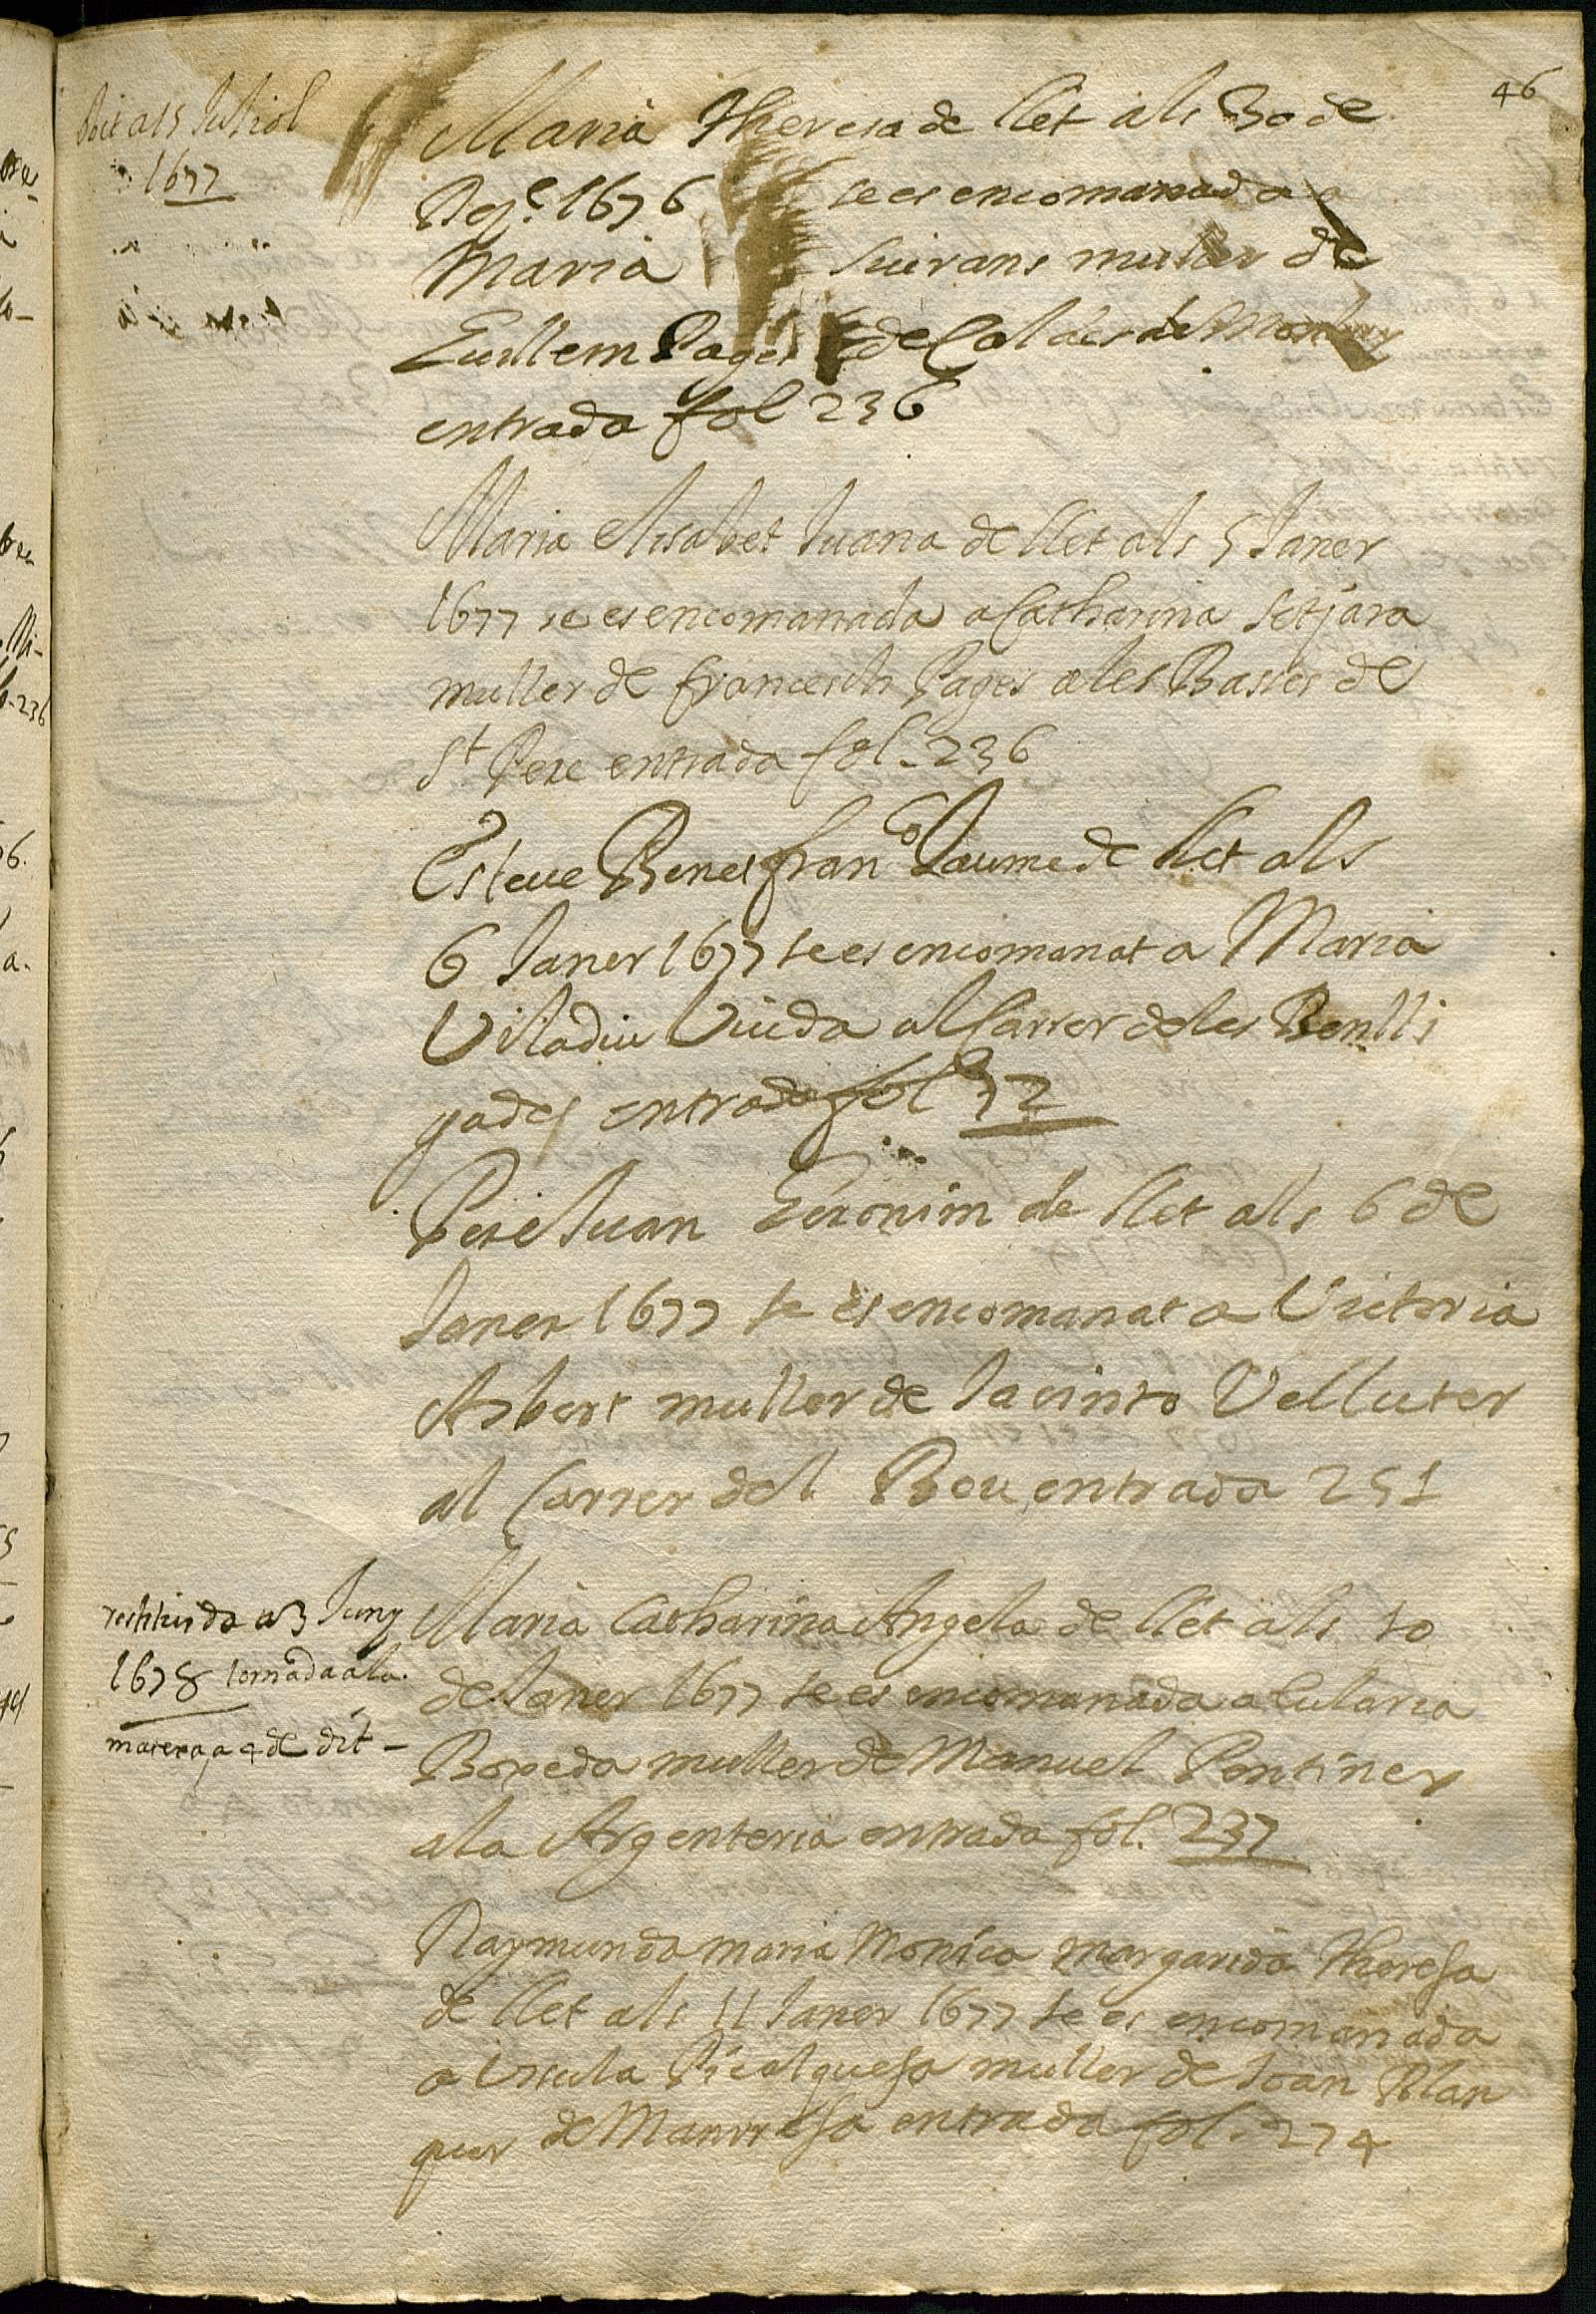 46
als Juliol
1677
Maria Theresa de llet als 30 de
Dez.e 1676 se es encomanada a
Maria Suirans muller de
Guillem Pages de Caldes de Montbuy
entrada fol 236
Maria Elisabet Juana de llet als 5 Janer
1677 se es encomanada a Catharina Setjara
muller de francesch Pages a les Basses de
St Pere entrada fol. 236
Esteve Benet franco Jaume de llet als
6 Janer 1677 se es encomanat a Maria
Viladiu Viuda al Carrer de les Benlli
gades entrada fol 32
Pere Juan Geronim de llet als 6 de
Janer 1677 se es encomanat a Victoria
Asbert muller de Jacinto Velluter
al Carrer del Bou entrada 251
restituida a 3 Juny
1678 tornada a la
matexa a 4 de dit -
Maria Catharina Angela de llet als 10
de Janer 1677 se es encomanada a Eularia
Boxeda muller de Manuel Pentiner
a la Argenteria entrada fol. 237
Raymunda maria Monica margarida Theresa
de llet als 11 Janer 1677 se es encomanada
a Ursula Picalquesa muller de Joan Blan
quer de Manrresa entrada fol. 274